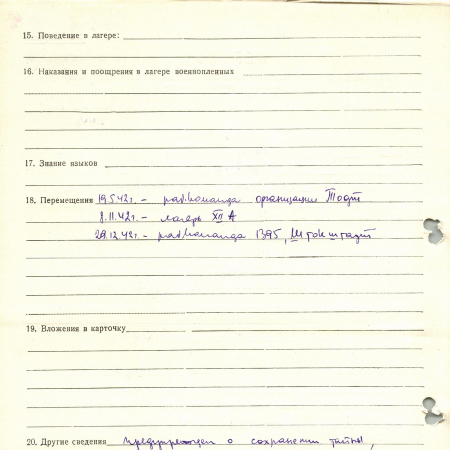 15. Поведение в лагере:
16. Наказания и поощрения в лагере военнопленных
17. Знание языков
18. Перемещения 19.5.42 г. - раб. команда организации Тодт
8.11.42 г. - лагерь XII А
29.12.42 г. - раб. команда 1395, Штокштадт
19. Вложения в карточку
20. Другие сведения предупрежден о сохранении тайны,